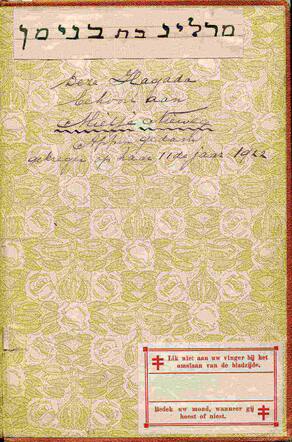 מרלינ בת בנימן
Deze Hagada
behoort aan
gekregen op haar 11de jaar 1922
Lik niet aan uw vinger bij het
omslaan van de bladzijde.
Bedek uw mond, wanneer gij
hoest of niest.